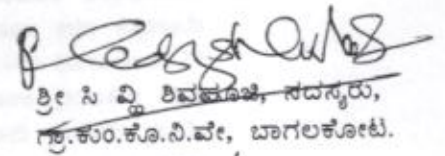 ಶ್ರೀ ಸಿ ವ್ಹಿ ಶಿವಮೂಜಿ, ಸದಸ್ಯರು,
ಗ್ರಾ.ಕುಂ.ಕೊ.ನಿ.ವೇ, ಬಾಗಲಕೋಟ.